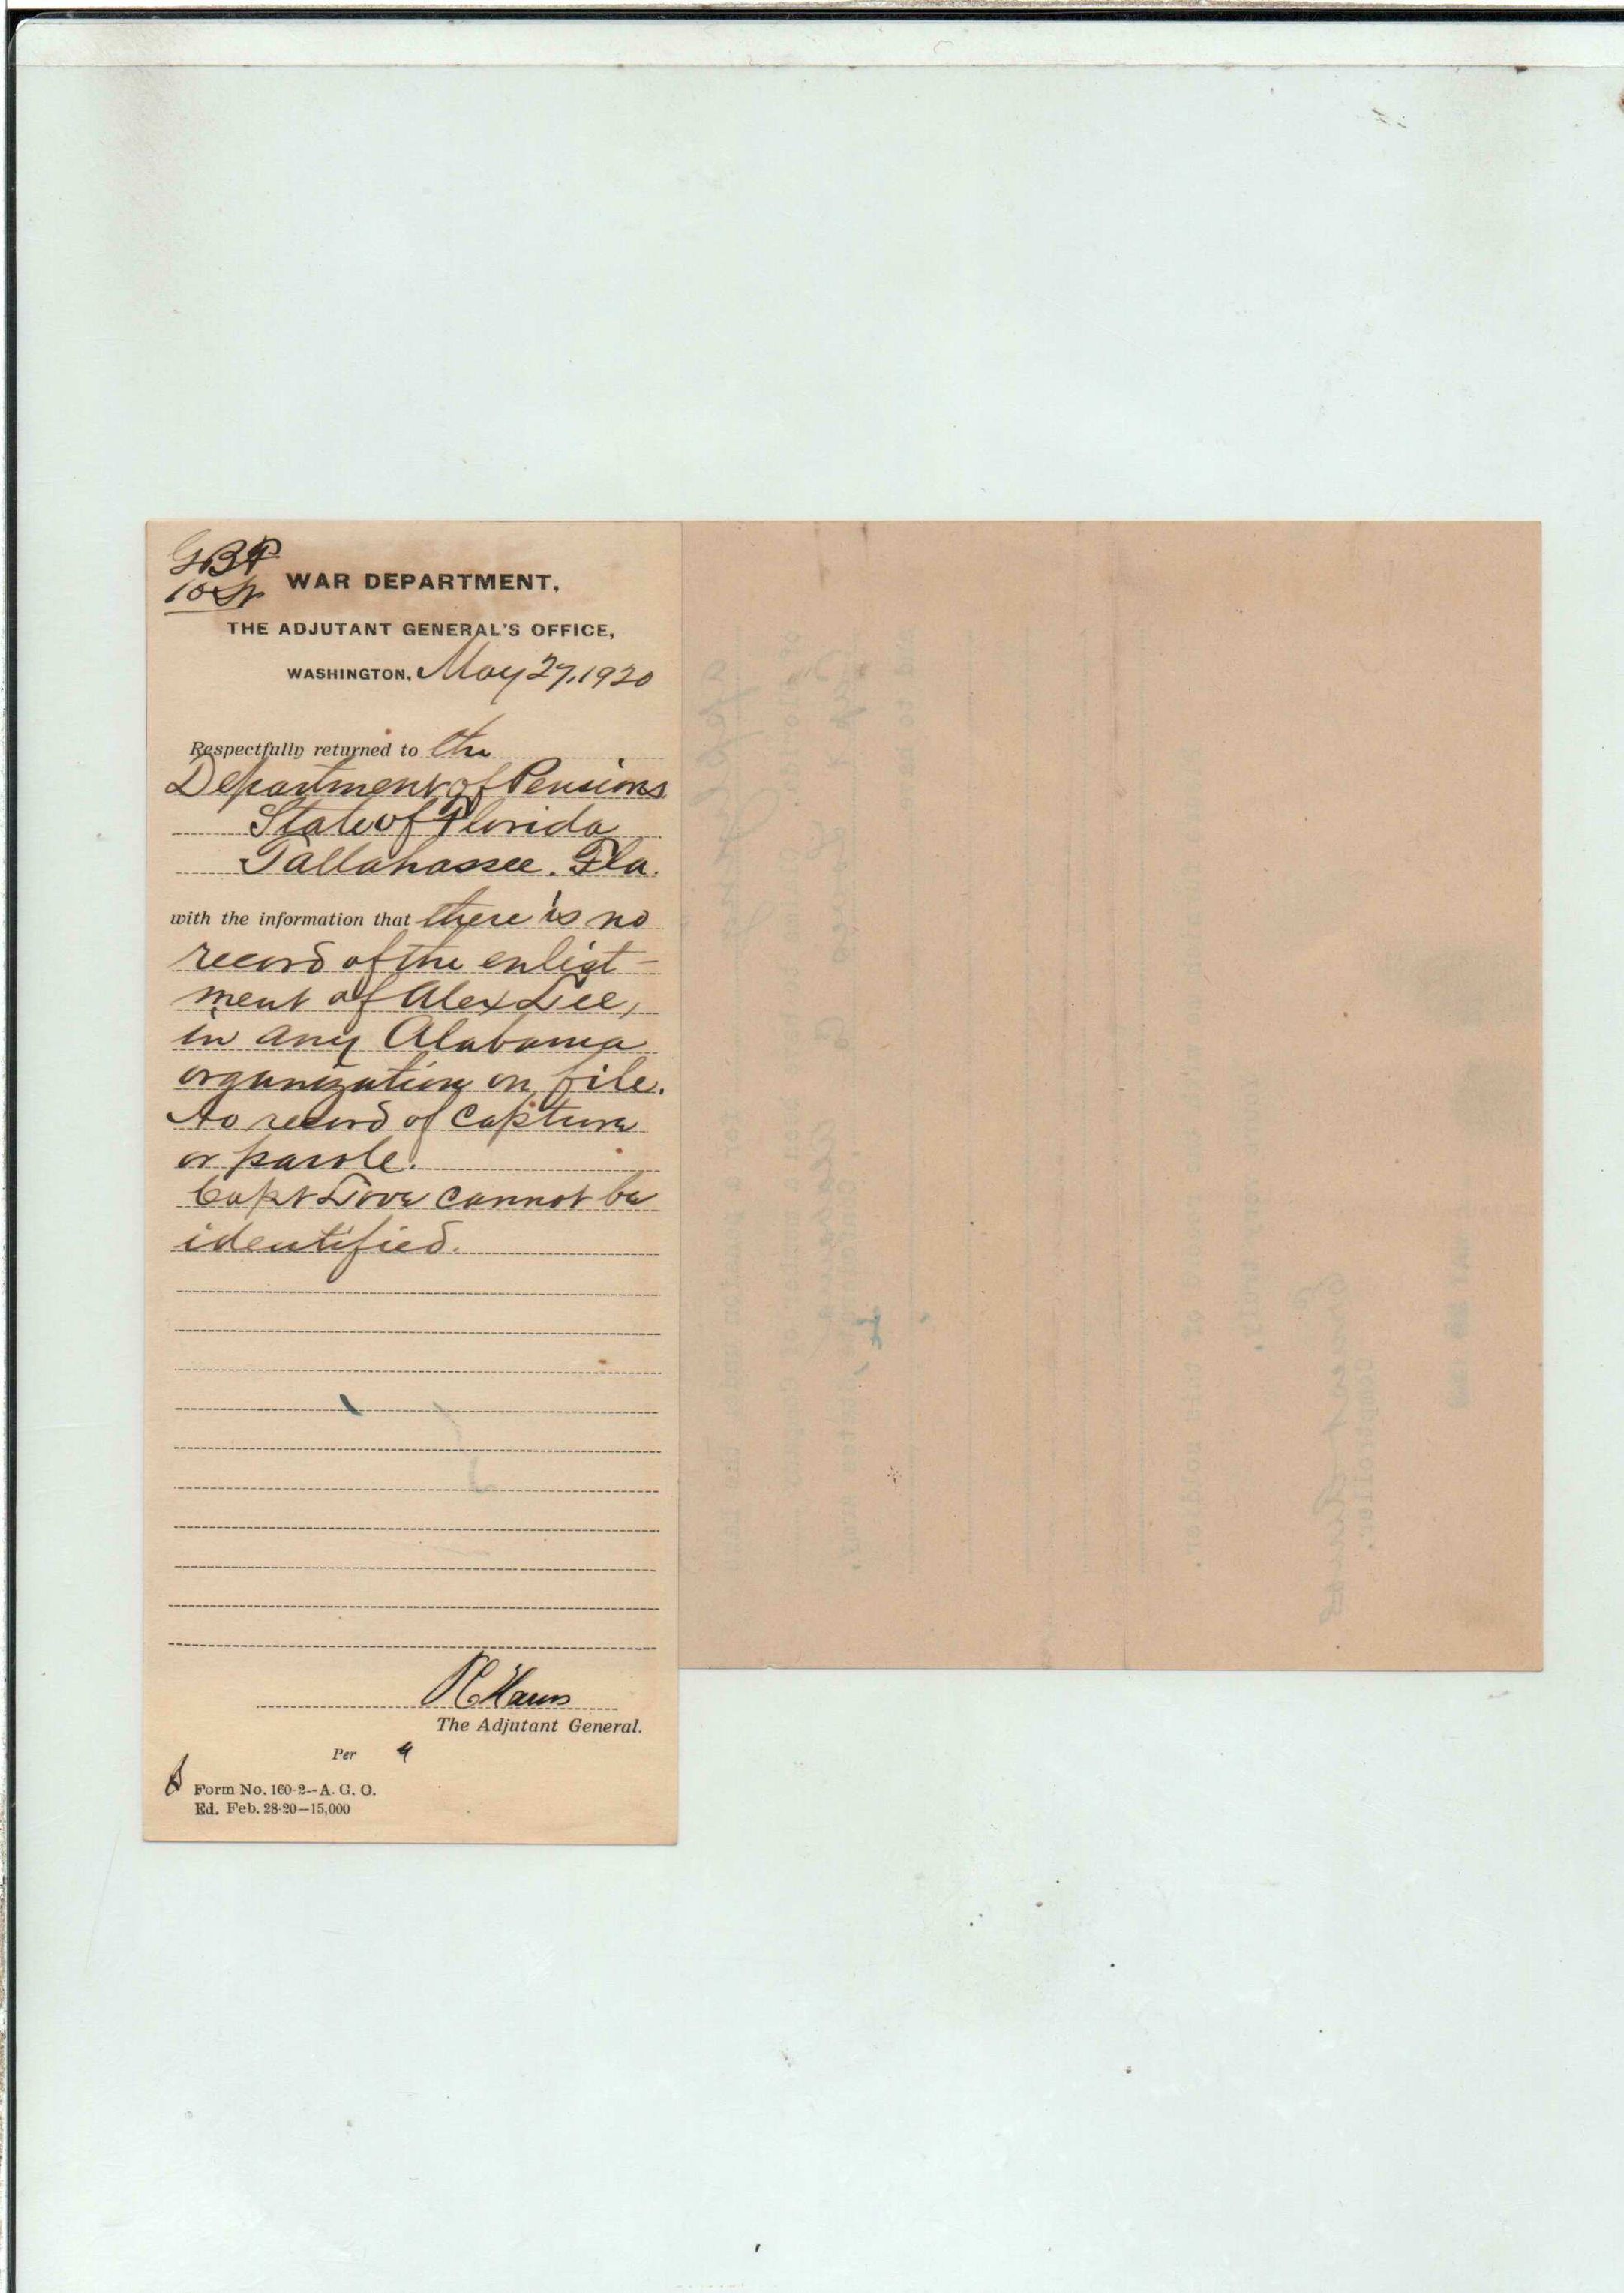 GBP
WAR DEPARTMENT,
THE ADJUTANT GENERAL'S OFFICE,
WASHINGTON, May 27, 1920
Respectfully returned to the
Department of Pensions
State of Florida
Tallahassee. Fla.
with the information that there is no
record of the enlist-
ment of Alex Lee,
in any Alabama
organization on file.
No record of capture
or parole.
Capt Love cannot be
identified.
P C Harris
The Adjutant General.
Per
Form No. 160-2--A. G. O.
Ed. Feb. 28-20—15,000